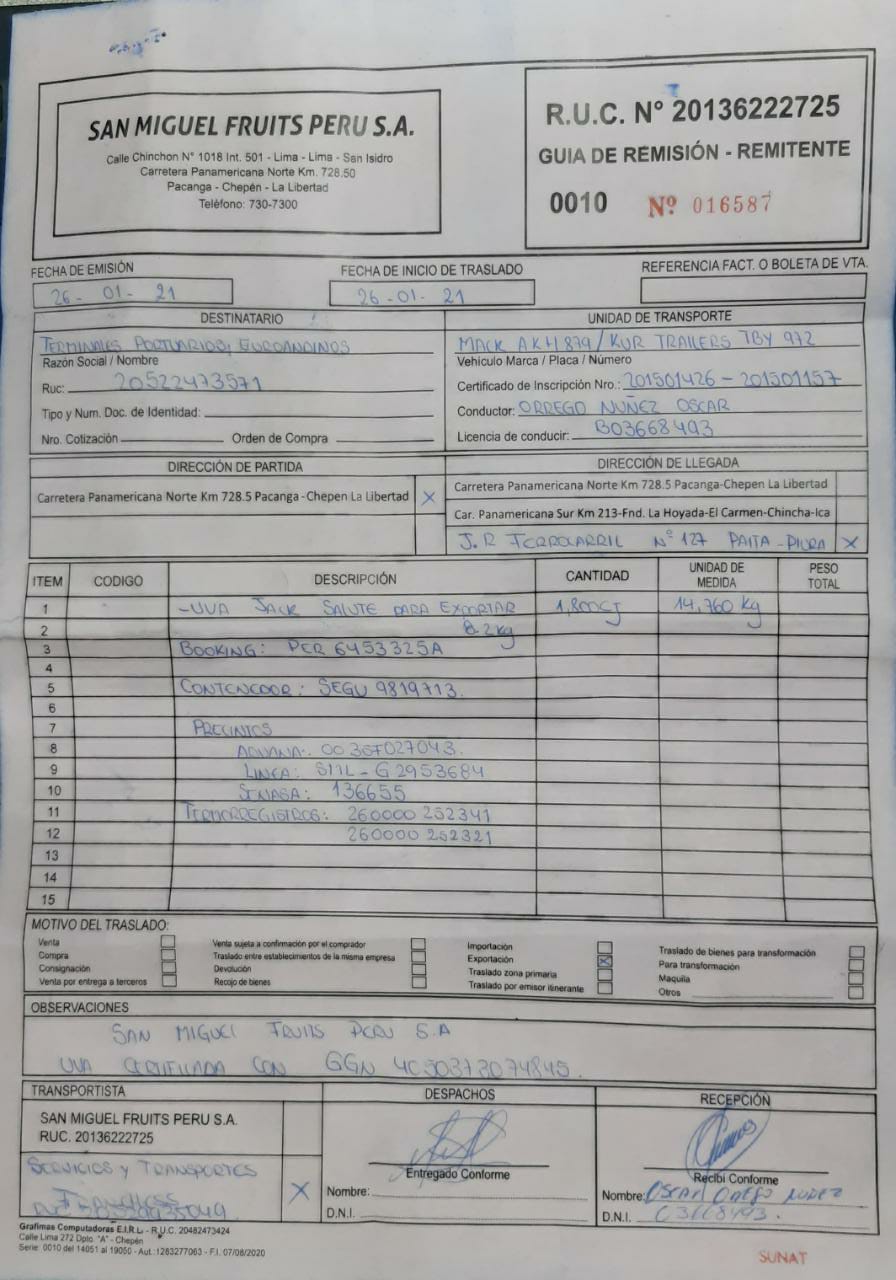 SAN MIGUEL FRUITS PERU S.A.
Calle Chinchon N° 1018 Int. 501 - Lima - Lima - San Isidro
Carretera Panamericana Norte Km. 728.50
Pacanga - Chepén - La Libertad
Teléfono: 730-7300
R.U.C. N° 20136222725
GUIA DE REMISIÓN - REMITENTE
0010 Nº 016587
FECHA DE EMISIÓN
26 - 01 - 21
FECHA DE INICIO DE TRASLADO
26-01-21
REFERENCIA FACT. O BOLETA DE VTA.
DESTINATARIO
TERMINALES PORTUARIOS EUROANDINOS
Razón Social / Nombre
Ruc: 20522473571
Tipo y Num. Doc. de Identidad:
Nro. Cotización Orden de Compra
UNIDAD DE TRANSPORTE
MACK AKH879/ KUR TRAILERS TBY 972
Vehículo Marca / Placa / Número
Certificado de Inscripción Nro.: 201501426 - 201501157
Conductor: ORREGO NUÑEZ OSCAR
Licencia de conducir: B03668493
DIRECCIÓN DE PARTIDA
Carretera Panamericana Norte Km 728.5 Pacanga-Chepen La Libertad X
DIRECCIÓN DE LLEGADA
Carretera Panamericana Norte Km 728.5 Pacanga-Chepen La Libertad
Car. Panamericana Sur Km 213-Fnd. La Hoyada-El Carmen-Chincha-Ica
J.R FERROCARRIL N° 127 PAITA - PIURA X
ITEM CODIGO DESCRIPCIÓN CANTIDAD UNIDAD DE MEDIDA PESO TOTAL
1 -UVA JACK SALUTE PARA EXPORTAR 1,800CJ 14,760 Kg
2 8.2kg
3 BOOKING: PER 6453325A
4
5 CONTENEDOR: SEGU 9819713.
6
7 PRECINTOS
8 ADUANA: 0036F027043.
9 LINEA: G2953684
10 SENASA: 136655
11 TERMORREGISTROS: 260000 252341
12 260000 252321
13
14
15
MOTIVO DEL TRASLADO:
Venta
Compra
Consignación
Venta por entrega a terceros
Venta sujeta a confirmación por el comprador
Traslado entre establecimientos de la misma empresa
Devolución
Recojo de bienes
Importación
Exportación X
Traslado zona primaria
Traslado por emisor itinerante
Traslado de bienes para transformación
Para transformación
Maquila
Otros
OBSERVACIONES
SAN MIGUEL FRUITS PERU S.A
UVA CERTIFICADA CON GGN 4050373074845.
TRANSPORTISTA
SAN MIGUEL FRUITS PERU S.A.
RUC. 20136222725
SERVICIOS Y TRANSPORTES
X
DESPACHOS
Entregado Conforme
Nombre:
D.N.I.
RECEPCIÓN
Recibi Conforme
Nombre: OSCAR Orrego NUÑEZ
D.N.I. 03668493.
Grafimas Computadoras E.I.R.L. - R.U.C. 20482473424
Calle Lima 272 Dpto. "A" - Chepén
Serie: 0010 del 14051 al 19050 - Aut.:1283277063 - F.I. 07/08/2020
SUNAT